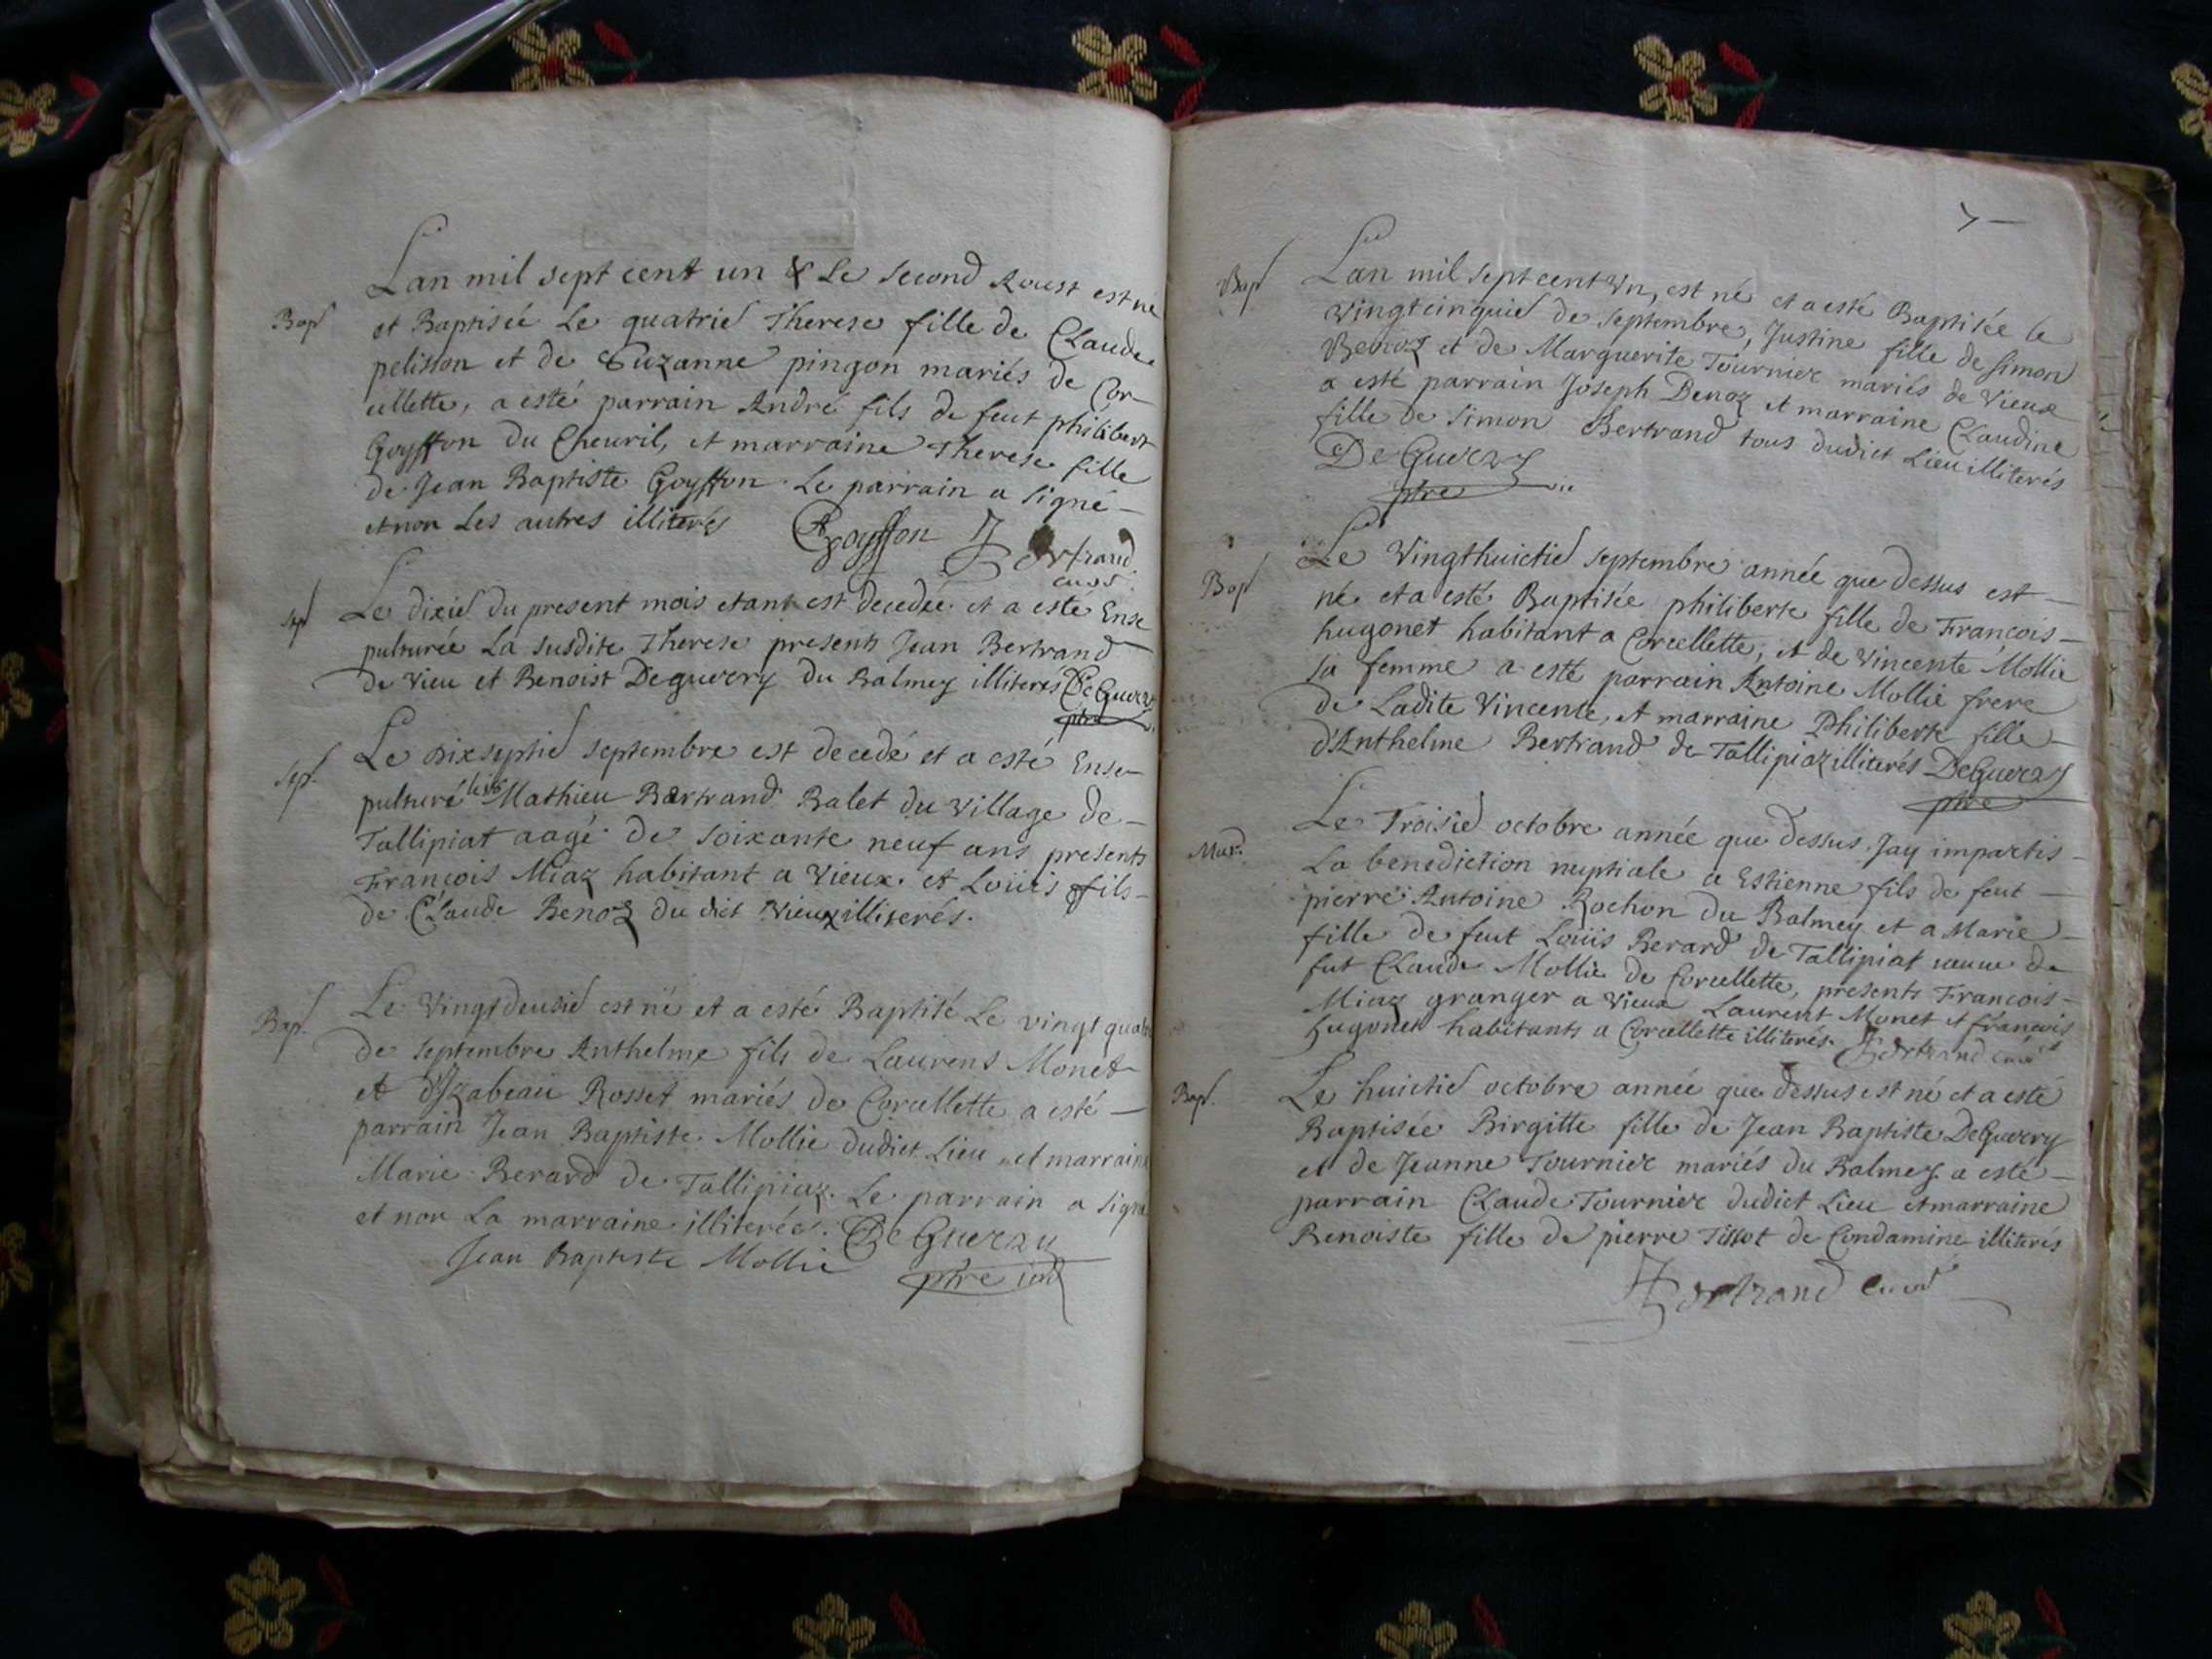 Lan mil sept cent un & Le second Aoust est né
Bap^t et Baptisée Le quatrie^e Therese fille de Claude
pelisson et de Suzanne pingon mariés de Cor-
cellette, a esté parrain André fils de feut philibert
Goyffon du Cheuril, et marraine Therese fille
de Jean Baptiste Goyffon Le parrain a signé -
et non Les autres illiterés Goyffon Bertrand
curé
Sep^t Le dixie^e du present mois etant est decedée et a esté Ense
pulturée La susdite Therese presents Jean Bertrand
de Vieu et Benoist Deguerry du Balmey illiteres DeGuerry
ptre
Sep^t. Le dixseptie^e septembre est decedé et a esté Ense-
pulturé Mathieu Bertrand Balet du village de -
Tallipiat aagé de soixante neuf ans presents
François Miaz habitant a Vieux. et Loüis fils -
de Claude Benoz du dict Vieux illiterés.
Bap^t. Le Vingtdeusie^e est né et a esté Baptisé Le vingt quatre
de septembre Anthelme fils de Laurens Monet
et d'Izabeau Rosset mariés de Corcellette a esté -
parrain Jean Baptiste Mollie dudict Lieu et marraine
Marie Berard de Tallipiaz. Le parrain a signé
et non La marraine illiterée. DeGuerry
Jean Baptiste Mollie ptre
7 -
Bap^t Lan mil sept cent Vn, est né et a esté Baptisée le
vingtcinquie^e de septembre, Justine fille de simon
Benoz et de Marguerite Tournier mariés de Vieux
a esté parrain Joseph Benoz et marraine Claudine
fille de simon Bertrand tous dudict Lieu illiterés
DeGuerry
ptre
Bap^t Le Vingthuictie^e septembre année que dessus est -
né et a esté Baptisée philiberte fille de François -
hugonet habitant a Corcellette, et de Vincente Mollie
sa femme a esté parrain Antoine Mollie frere
de Ladite Vincente, et marraine Philiberte fille -
d'Anthelme Bertrand de Tallipiaz illiterés DeGuerry
ptre
Mar. Le Troisie^e octobre année que dessus Jay impartis -
La benediction nuptiale a Estienne fils de feut -
pierre Antoine Rochon du Balmey et a Marie -
fille de feut Loüis Berard de Tallipiat veuve de
fut Claude Mollie de Corcellette, presents François -
Miaz granger a Vieux Laurent Monet et françois
hugonet habitants a Corcellette illiterés. Bertrand curé
Bap^t. Le huictie^e octobre année que dessus est né et a esté
Baptisée Birgitte fille de Jean Baptiste DeGuerry
et de Jeanne Tournier mariés du Balmey. a esté -
parrain Claude Tournier dudict Lieu et marraine
Benoiste fille de pierre Tissot de Condamine illiterés
Bertrand curé